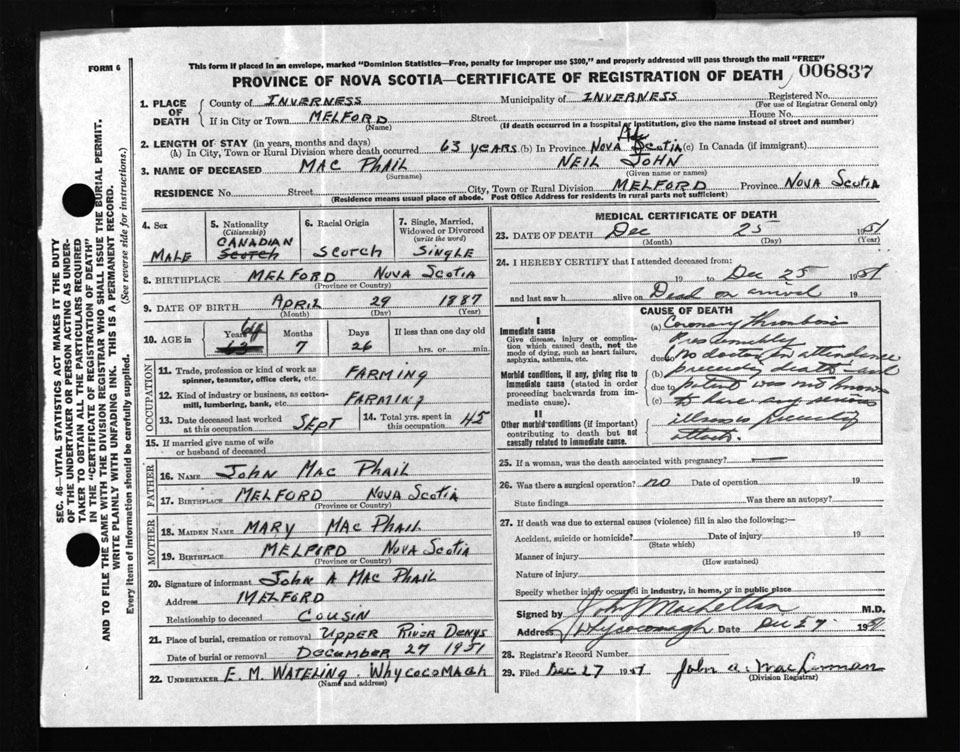 FORM 6
This form if placed in an envelope, marked "Dominion Statistics—Free, penalty for improper use $300," and properly addressed will pass through the mail "FREE"
PROVINCE OF NOVA SCOTIA—CERTIFICATE OF REGISTRATION OF DEATH 006837
1. PLACE OF DEATH
County of INVERNESS Municipality of INVERNESS Registered No.
(For use of Registrar General only)
If in City or Town MELFORD Street House No.
(Name) (If death occurred in a hospital or institution, give the name instead of street and number)
2. LENGTH OF STAY (in years, months and days)
(A) In City, Town or Rural Division where death occurred 63 YEARS (b) In Province NOVA SCOTIA (c) In Canada (if immigrant)
3. NAME OF DECEASED MAC PHAIL NEIL JOHN
(Surname) (Given name or names)
RESIDENCE No. Street City, Town or Rural Division MELFORD Province NOVA SCOTIA
(Residence means usual place of abode. Post Office Address for residents in rural parts not sufficient)
4. Sex
MALE
5. Nationality
(Citizenship)
CANADIAN
SCOTCH
6. Racial Origin
SCOTCH
7. Single, Married, Widowed or Divorced
(write the word)
SINGLE
8. BIRTHPLACE MELFORD NOVA SCOTIA
(Province or Country)
9. DATE OF BIRTH APRIL 29 1887
(Month) (Day) (Year)
10. AGE in
Years Months Days If less than one day old
64
63 7 26 hrs. or min.
OCCUPATION
11. Trade, profession or kind of work as
spinner, teamster, office clerk, etc. FARMING
12. Kind of industry or business, as cotton-
mill, lumbering, bank, etc. FARMING
13. Date deceased last worked
at this occupation SEPT
14. Total yrs. spent in
this occupation 45
15. If married give name of wife
or husband of deceased
FATHER
16. NAME JOHN MAC PHAIL
17. BIRTHPLACE MELFORD NOVA SCOTIA
(Province or Country)
MOTHER
18. MAIDEN NAME MARY MAC PHAIL
19. BIRTHPLACE MELFORD NOVA SCOTIA
(Province or Country)
20. Signature of informant JOHN A MAC PHAIL
Address MELFORD
Relationship to deceased COUSIN
21. Place of burial, cremation or removal UPPER RIVER DENYS
Date of burial or removal DECEMBER 27 1951
22. UNDERTAKER E. M. WATELING. WHYCOCOMAGH
(Name and address)
MEDICAL CERTIFICATE OF DEATH
23. DATE OF DEATH Dec 25 1951
(Month) (Day) (Year)
24. I HEREBY CERTIFY that I attended deceased from:
19 to Dec 25 1951
and last saw h alive on Dead on arrival 19
I
Immediate cause
Give disease, injury or complication which caused death, not the mode of dying, such as heart failure, asphyxia, asthenia, etc.
Morbid conditions, if any, giving rise to immediate cause (stated in order proceeding backwards from immediate cause).
II
Other morbid conditions (if important) contributing to death but not causally related to immediate cause.
CAUSE OF DEATH
(a) Coronary Thrombosis
Presumably
due to no doctor in attendance
(b) preceding death and
due to patient was not known
(c) to have any serious
illness preceding
attack.
25. If a woman, was the death associated with pregnancy? —
26. Was there a surgical operation? no Date of operation 19
State findings Was there an autopsy?
27. If death was due to external causes (violence) fill in also the following:—
Accident, suicide or homicide? Date of injury 19
(State which)
Manner of injury
(How sustained)
Nature of injury
Specify whether injury occurred in industry, in home, or in public place
Signed by M.D.
Address Whycocomagh Date Dec 27 1951
28. Registrar's Record Number
29. Filed Dec 27 1951 John A. MacLennan
(Division Registrar)
SEC. 46—VITAL STATISTICS ACT MAKES IT THE DUTY
OF THE UNDERTAKER OR PERSON ACTING AS UNDER-
TAKER TO OBTAIN ALL THE PARTICULARS REQUIRED
IN THE "CERTIFICATE OF REGISTRATION OF DEATH"
AND TO FILE THE SAME WITH THE DIVISION REGISTRAR WHO SHALL ISSUE THE BURIAL PERMIT.
WRITE PLAINLY WITH UNFADING INK. THIS IS A PERMANENT RECORD.
Every item of Information should be carefully supplied. (See reverse side for instructions.)